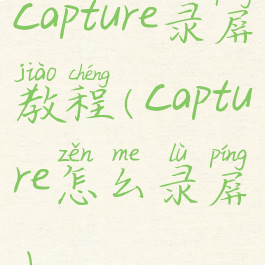 Capture录屏
jiào chéng
教程(Captu
zěn me lù píng
re怎么录屏
)